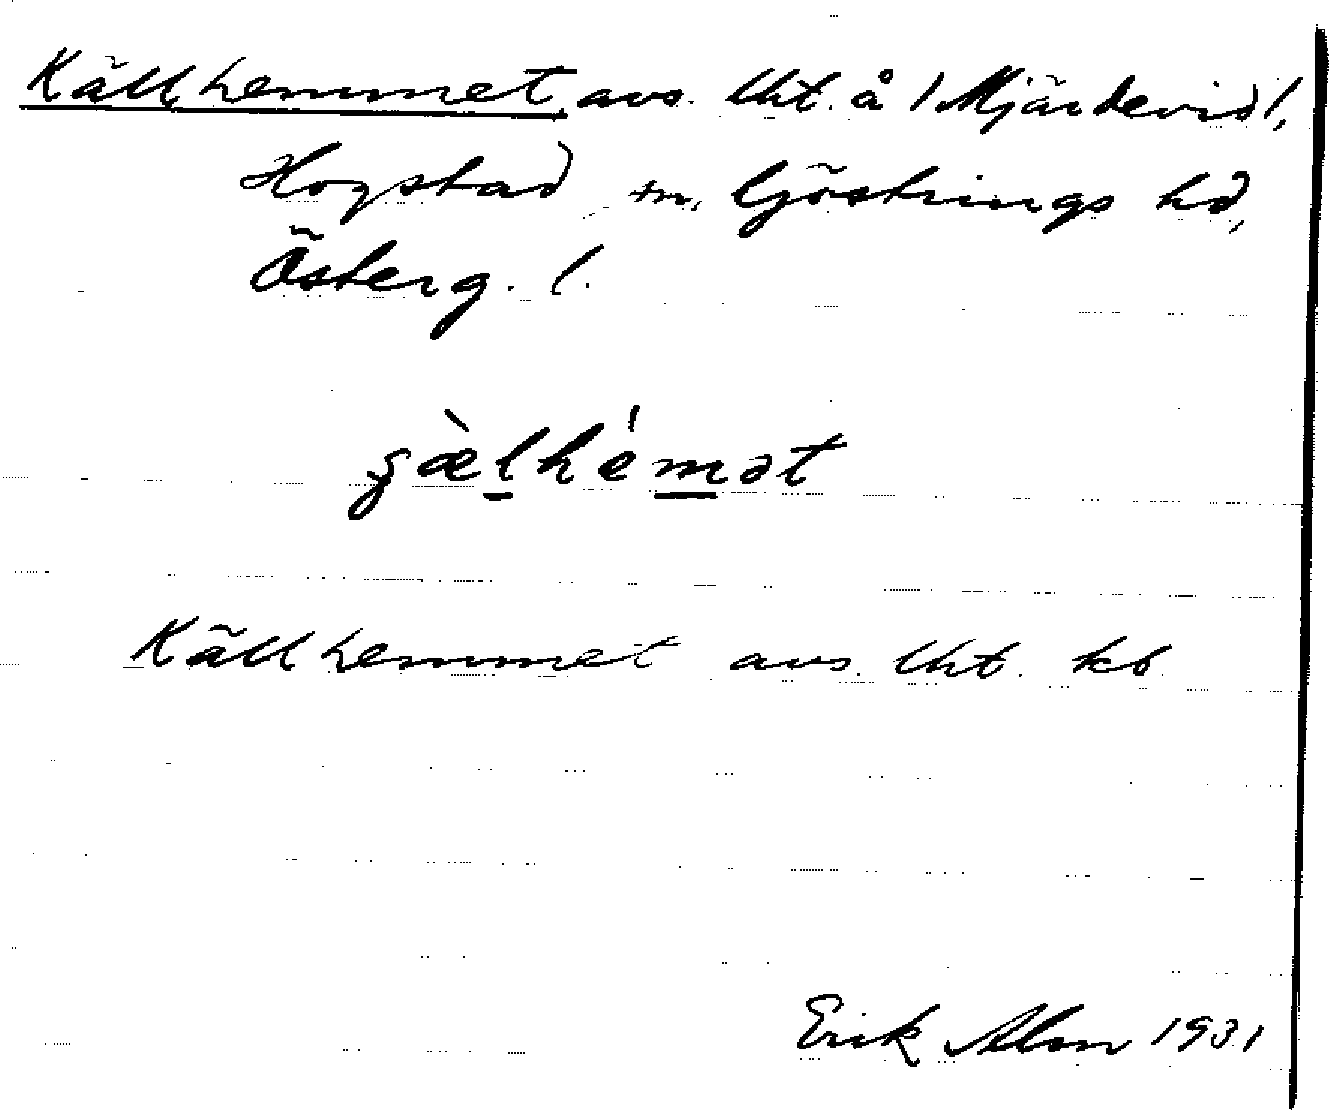 Källhemmet, avs. lht. å /Mjärdevid/,
Hogstad sn, Göstrings hd,
Österg. l.
gæ̀lhémət
Källhemmet avs. lht. kb
Erik Alm 1931